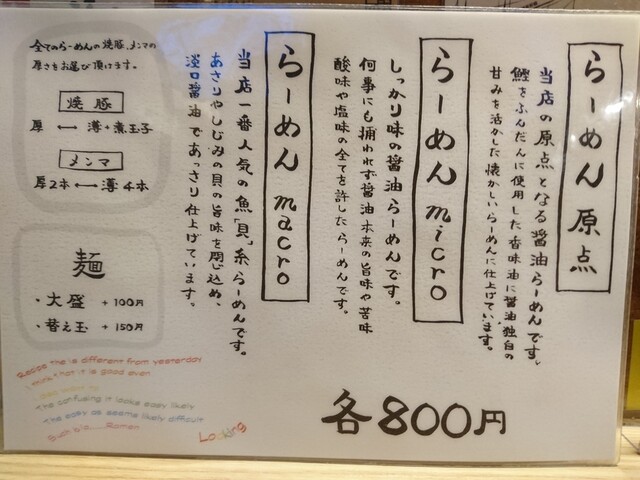 らーめん原点
当店の原点となる醤油らーめんです。
鰹をふんだんに使用した香味油に醤油独自の
甘みを活かした懐かしいらーめんに仕上げています。
らーめんmicro
しっかり味の醤油らーめんです。
何事にも捕われず醤油本来の旨味や苦味
酸味や塩味の全てを許したらーめんです。
らーめんmacro
当店一番人気の魚「貝」系らーめんです。
あさりやしじみの貝の旨味を閉じ込め、
淡口醤油であっさり仕上げています。
各800円
全てのらーめんの焼豚、メンマの
厚さをお選び頂けます。
焼豚
厚 ←→ 薄+煮玉子
メンマ
厚2本 ←→ 薄4本
麺
・大盛 +100円
・替え玉 +150円
Recipe the is different from yesterday
I think that it is good even
The confusing it looks easy likely
The easy as seems likely difficult
Ramen
Looking